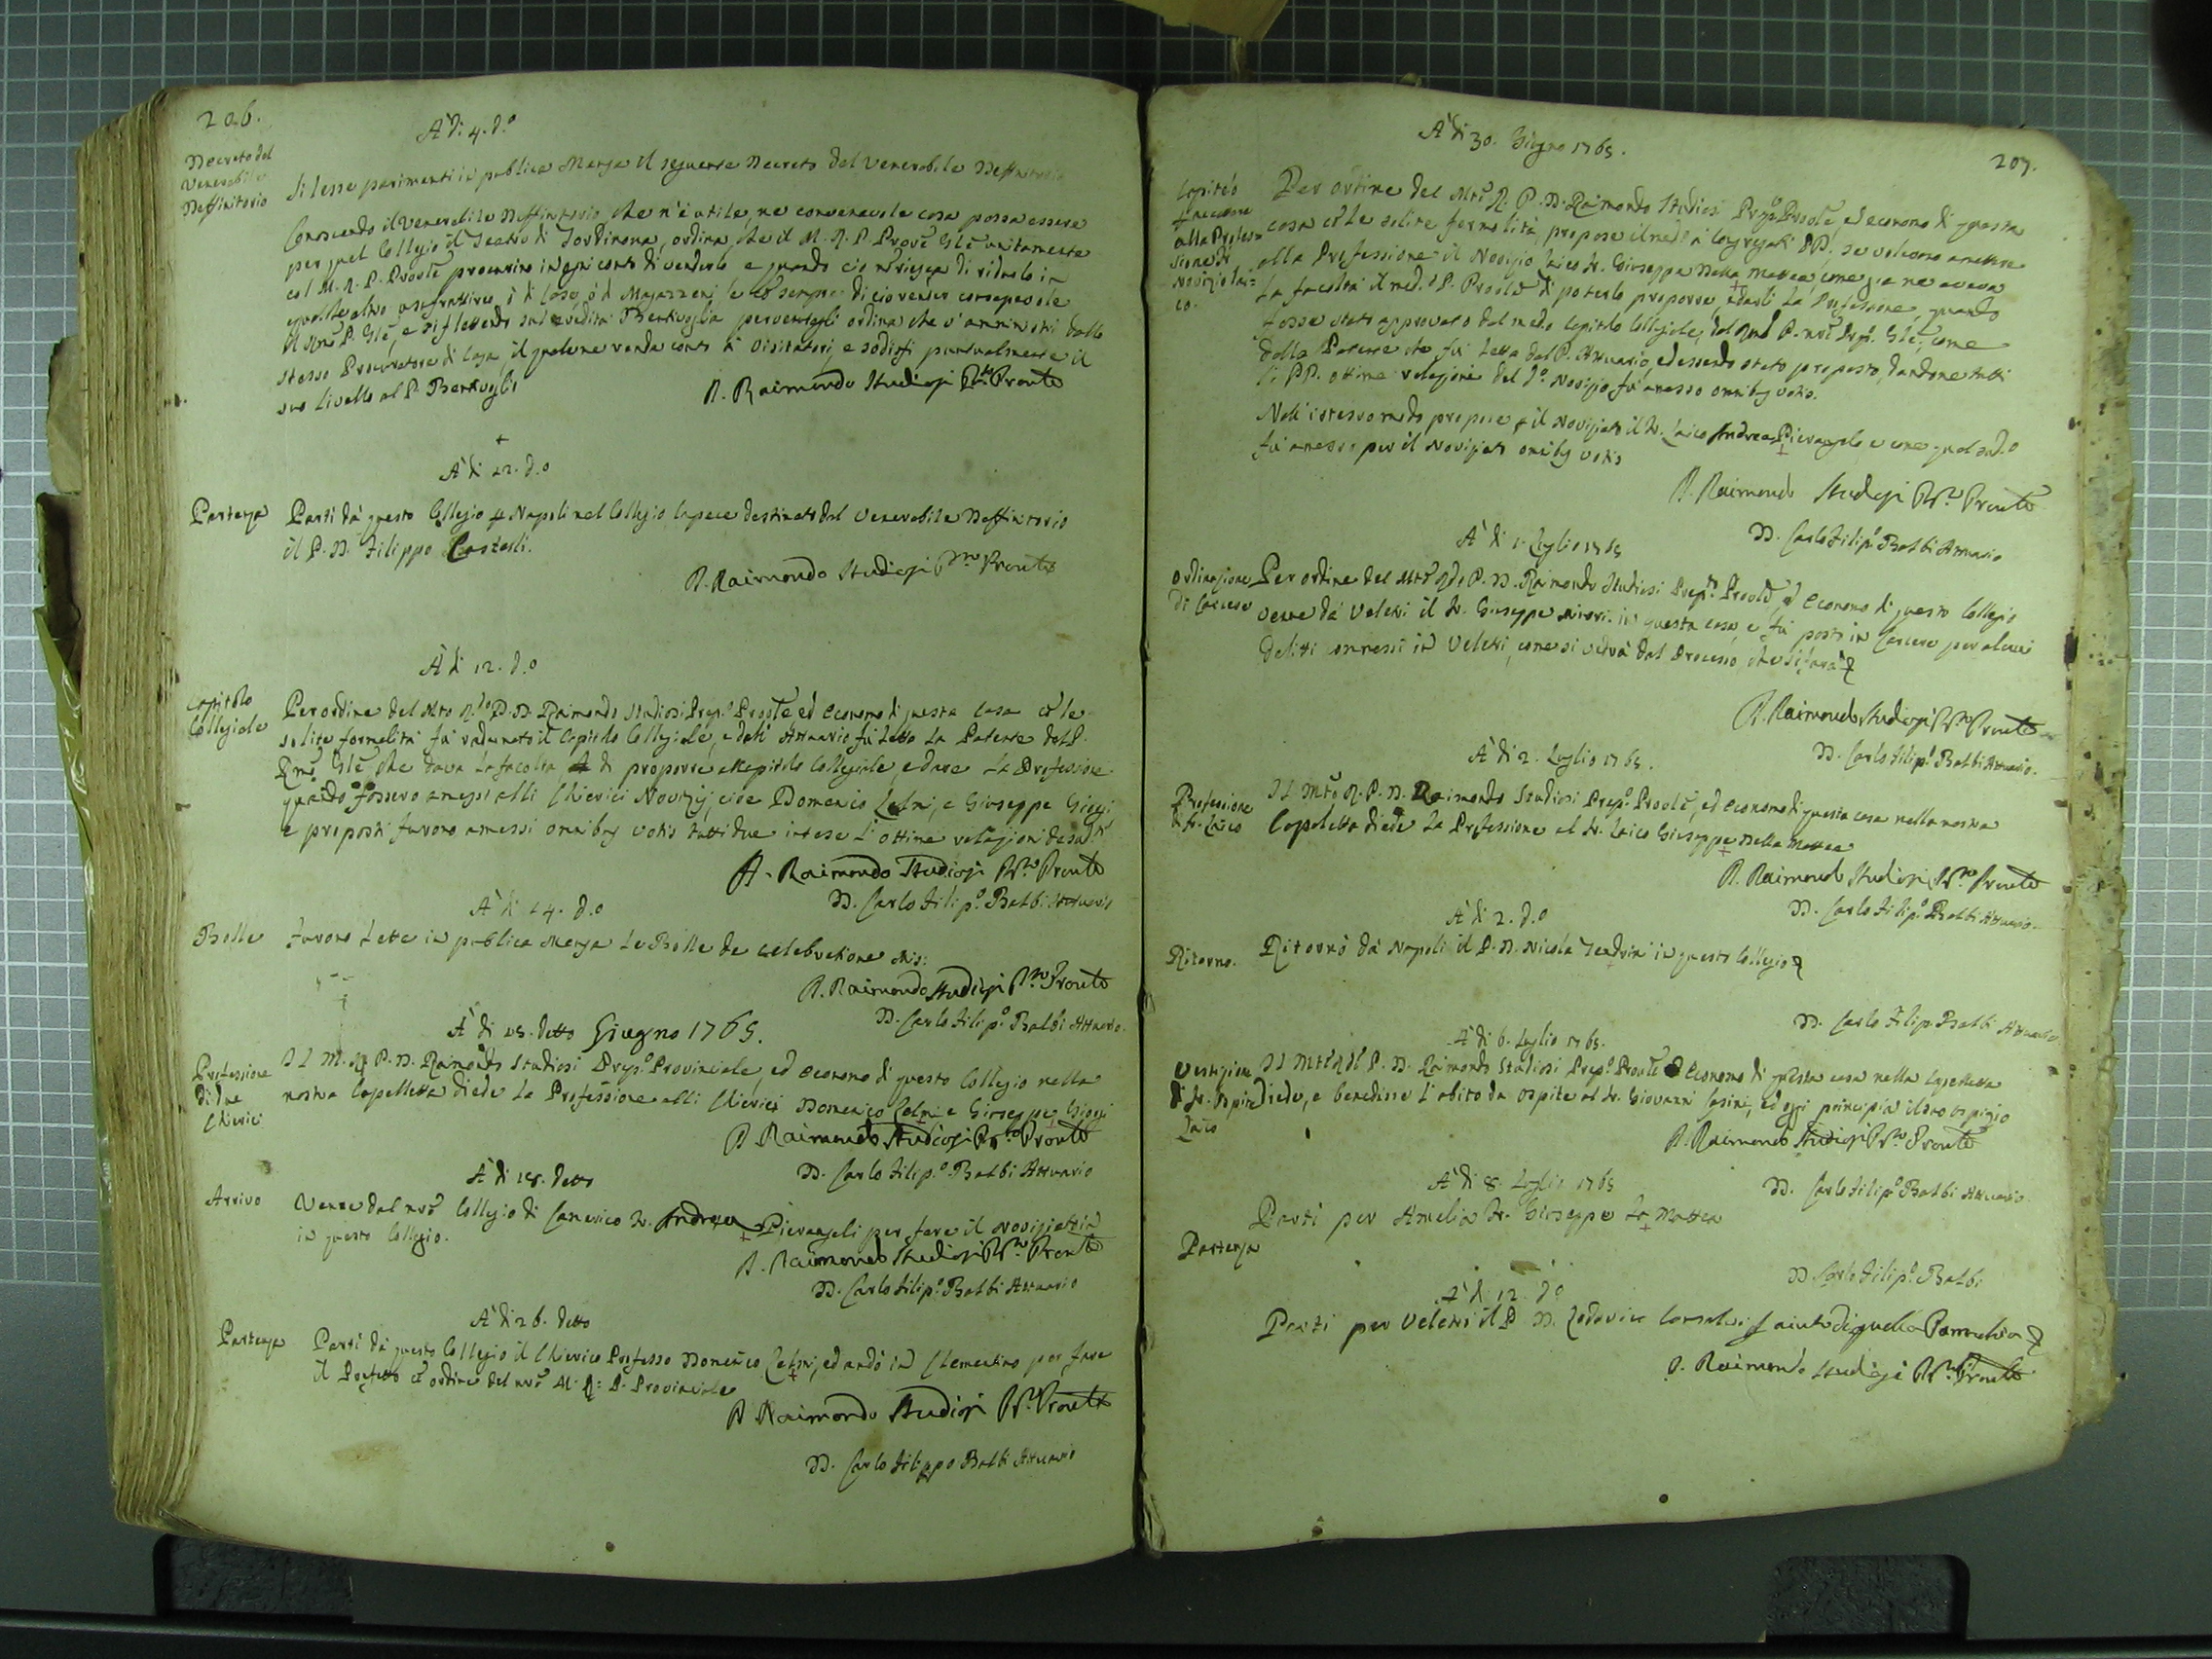 206.
A dì 4. d.o
Decreto del
Venerabile
Deffinitorio
Si lesse parimenti in publica Mensa il seguente Decreto del Venerabile Deffinitorio
Conoscendo il Venerabile Deffinitorio, che n'è utile, ne convenevole cosa possa essere
per quel Collegio il Teatro di Tordinona, ordina, che il M. R. P. Provle Gle unitamente
col M. R. P. Provle procurino in ogni conto di venderlo e quando ciò riesca di ridurlo in
qualche altro uso fruttifero, ò di Case, ò di Magazzeni,
il P. Gle, e riflettendo sul Bentivoglio ordina che s'amministri dallo
stesso Procuratore di Casa, il quale ne renda conto à Visitatori, e sodisfi puntualmente il
suo livello al P. Bentivoglio
D. Raimondo Studiosi Proule
A dì 22. d.o
Partenza
Partì dà questo Collegio Napoli nel Collegio Capece destinato dal Venerabile Deffinitorio
il P. D. Filippo
D. Raimondo Studiosi Proule
A dì 12. d.o
Capitolo
Collegiale
Per ordine del Mto R.do P. D. Raimondo Studiosi Prep.o Proule ed Economo di questa Casa cõ le
solite formalità fù radunato il Capitolo Collegiale, e dall' Attuario fù letta la Patente del P.
Rmo. Gle, che dava la facoltà di proporre Capitolo Collegiale, e dare la Professione
quando fossero amessi alli Chierici Novizij, cioè Domenico Celmi, e Giuseppe
e proposti furono amessi omibus votis tutti due intese l'ottime relazioni
D. Raimondo Studiosi Proule
D. Carlo Filip.o Balbi Attuario
A dì 14. d.o
Bolle
Furono lette in publica Mensa le Bolle de celebratione Mis:
D. Raimondo Studiosi Proule
D. Carlo Filip.o Balbi Attuario
A dì 15. detto Giugno 1765.
Professione
di due
Chierici
Il M. R. P. D. Raimondo Studiosi Prep.o Provinciale, ed Economo di questo Collegio nella
nostra Capelletta diede la Professione alli Chierici Domenico Celmi e Giuseppe
D. Raimondo Studiosi Proule
D. Carlo Filip.o Balbi Attuario
A dì 18. detto
Arrivo
Venne dal nrõ Collegio di Camerino Fr. Andrea Pierangeli per fare il noviziato
in questo Collegio.
D. Raimondo Studiosi Proule
D. Carlo Filip.o Balbi Attuario
A dì 26. detto
Partenza
Partì dà questo Collegio il Chierico Professo Domenico Celmi, ed andò in Clementino per fare
il Prefetto cõ ordine del nrõ M. R. P. Provinciale
D. Raimondo Studiosi Proule
D. Carlo Filippo Balbi Attuario
207.
A dì 30. Giugno 1765.
Capitolo
alla Profes=
sione di
Novizio Lai=
co.
Per ordine del Mto R. P. D. Raimondo Studiosi Prep.o Proule, ed economo di questa
casa cõ le solite formalità, propose il à Congregati PP. se volevano amettere
alla Professione il Novizio Laico Fr. Giuseppe Della Mattea, come già ne aveva
la facoltà il med.o P. Proule di poterlo proporre, e darli la Professione, quando
fosse stato approvato dal Capitolo Collegiale, dal P. nrõ Prep.o Gle, come
dalla Patente che fù letta dal P. Attuario, ed essendo stato proposto, dandone tutti
li PP. ottime relazione del d.o Novizio fù amesso omibus votis.
Nell' istesso modo propose il Noviziato il Fr. Laico Andrea Pierangeli, e come
fù amesso per il Noviziato omibus votis
D. Raimondo Studiosi Proule
D. Carlo Filip.o Balbi Attuario
A dì 1. Luglio 1765
Ordinazione
di Carcere
Per ordine del Mto R.do P. D. Raimondo Studiosi Prep.to Proule, ed Economo di questo Collegio
venne dà Veletri il Fr. Giuseppe in questa casa, e fù posto in Carcere per alcuni
delitti commessi in Veletri, come si vedrà dal Processo, che si farà
D. Raimondo Studiosi Proule
D. Carlo Filip.o Balbi Attuario.
A dì 2. Luglio 1765.
Professione
di Fr. Laico
Il Mto R. P. D. Raimondo Studiosi Prep.o Proule, ed Economo di questa casa nella nostra
Capeletta diede la Professione al Fr. Laico Giuseppe Della Mattea
D. Raimondo Studiosi Proule
D. Carlo Filip.o Balbi Attuario.
A dì 2. d.o
Ritorno.
Ritornò dà Napoli il P. D. Nicola in questo Collegio
D. Carlo Filip. Balbi Attuario
A dì 6. Luglio 1765.
Vestizione
di Fr. Ospite
Laico
Il Mto R.do P. D. Raimondo Studiosi Prep.o Proule Economo di questa casa nella Capelletta
diede, e benedisse l'abito da ospite al Fr. Giovanni Casini, ed oggi principia il suo ospizio
D. Raimondo Studiosi Proule
D. Carlo Filip.o Balbi Attuario
A dì 8. Luglio 1765
Partenza
Partì per Amelia Fr. Giuseppe La Mattea
D. Carlo Filip.o Balbi
A dì 12. d.o
Partì per Veletri il P. D. Lodovico aiuto di quella Parrochia
D. Raimondo Studiosi Proule